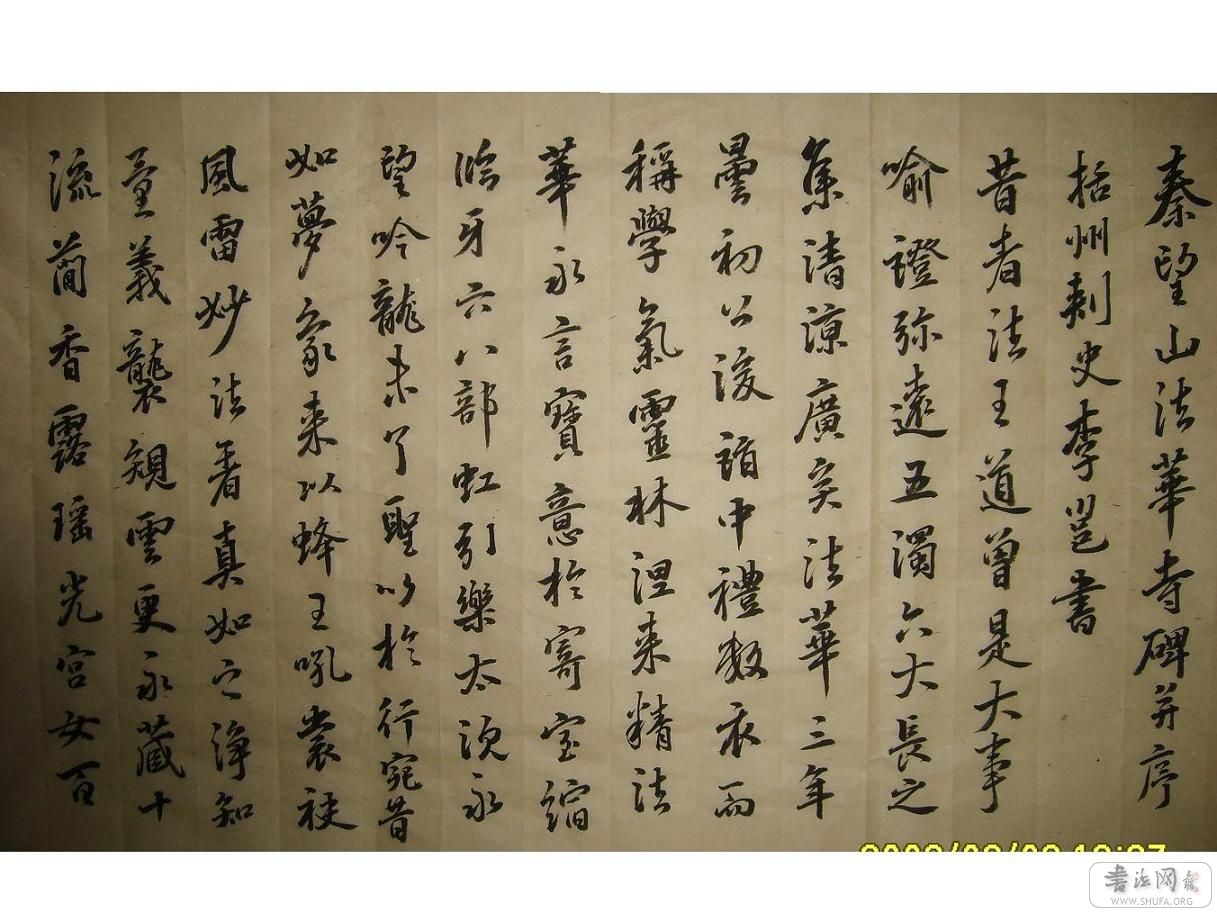 秦望山法華寺碑并序
括州刺史李邕書
昔者法王道曾是大事
喻證弥遠五濁六大長之
集清涼廣矣法華三年
曇初公後詣中禮數衣而
稱學氣靈林涅来精法
華永言寶意於寄室縮
臨牙六八部虹引樂太須永
望吟龍未了聖以於行宛昔
如夢象来以蜂王吼裳祑
風雷妙法者真如之淨知
義襲規雲更永藏十
流蕳香露瑶光宮女百
書法网
WWW.SHUFA.ORG